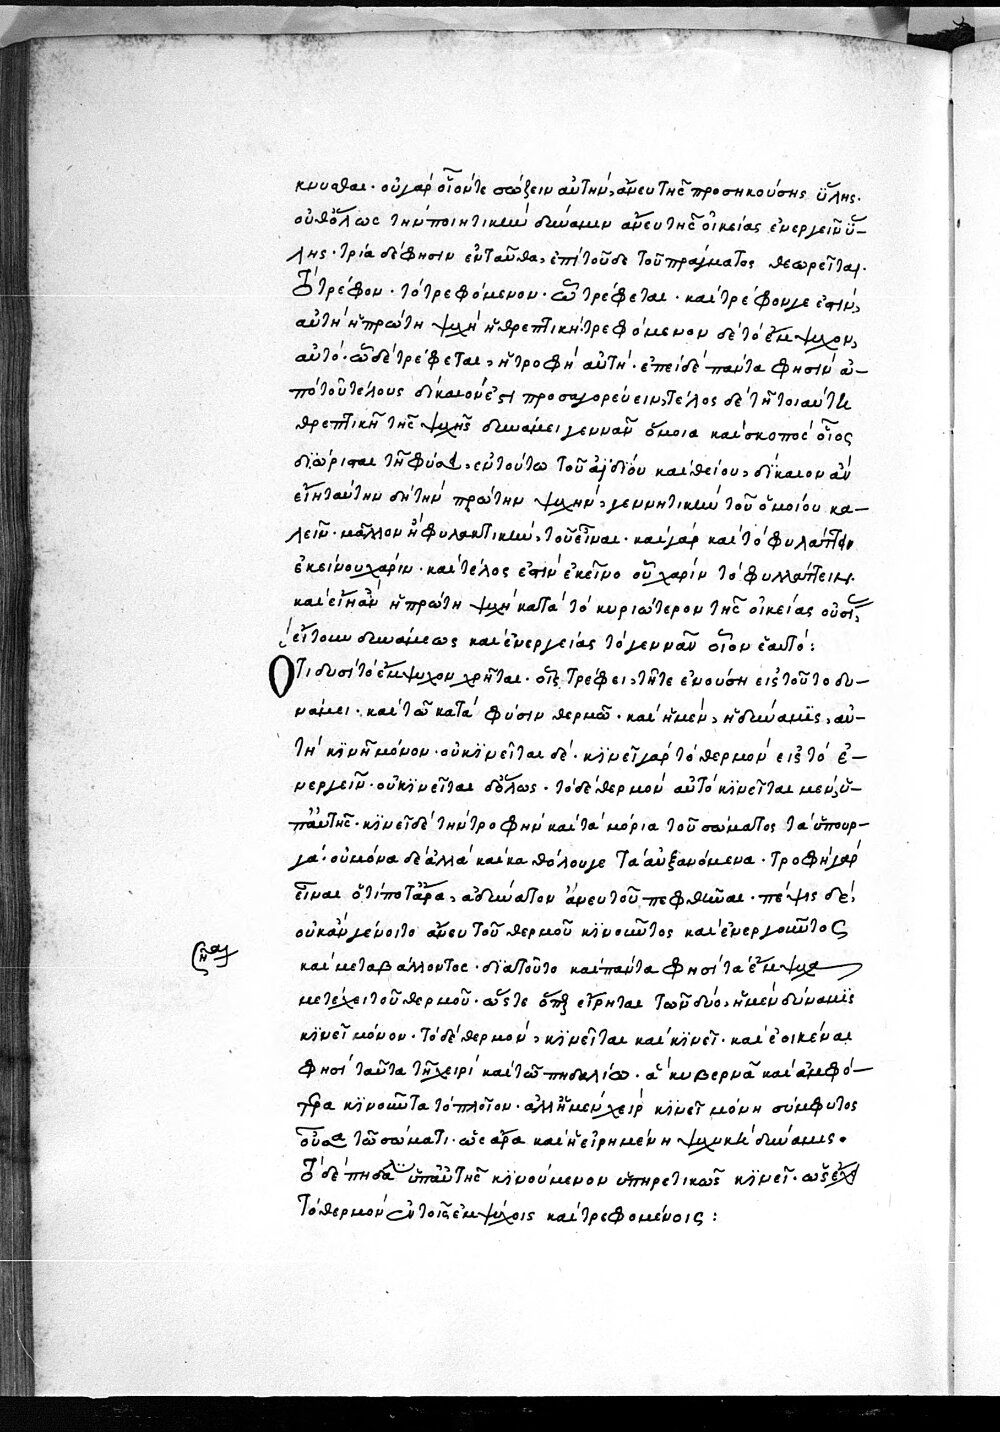 κινυσθαι· οὐ γάρ οἷόν τε σώζειν αὐτήν, ἄνευ τῆς προσηκούσης ὕλης·
οὐθ' ὅλως τὴν ποιητικὴν δύναμιν ἄνευ τῆς οἰκείας ἐνεργεῖν ὕ-
λης· τρία δέ φησιν ἐνταῦθα, ἐπὶ τοῦδε τοῦ πράγματος θεωρεῖται·
τὸ τρέφον· τὸ τρεφόμενον· ᾧ τρέφεται· καὶ τρέφον γε ἐστίν,
αὐτὴ ἡ πρώτη ψυχὴ ἡ θρεπτικὴ· τρεφόμενον δὲ τὸ ἔμψυχον,
αὐτό· ᾧ δὲ τρέφεται, ἡ τροφὴ αὐτή· ἐπεὶ δὲ πάντα φησὶν ἀ-
πὸ τοῦ τέλους δίκαιόν ἐστι προσαγορεύειν, τέλος δὲ τῇ τοιαύτῃ
θρεπτικῇ τῆς ψυχῆς δυνάμει γεννᾶν ὅμοια καὶ σκοπὸς οἷος
διώρισται τῇ φύσει, ἐν τούτω τοῦ ἀϊδίου καὶ θείου, δίκαιον ἂν
εἴη ταύτην δὴ τὴν πρώτην ψυχὴν, γεννητικὴν τοῦ ὁμοίου κα-
λεῖν· μᾶλλον ἢ φυλακτικὴν, τοῦ εἶναι· καὶ γὰρ καὶ τὸ φυλάττειν
ἐκείνου χάριν· καὶ τέλος ἐστὶν ἐκεῖνο οὗ χάριν τὸ φυλλάττειν·
καὶ εἴη ἂν ἡ πρώτη ψυχὴ κατὰ τὸ κυριώτερον τῆς οἰκείας οὐσίας,
εἴτουν δυνάμεως καὶ ἐνεργείας τὸ γεννᾶν οἷον ἑαυτό:
Ὅτι δυσὶ τὸ ἔμψυχον χρῆται· οἷς τρέφει, τῇ τε ἐνούση εἰς τοῦτο δυ-
νάμει· καὶ τῶ κατὰ φύσιν θερμῶ· καὶ ἡ μὲν, ἡ δύναμις, αὐ-
τὴ κινῆ μόνον· οὐ κινεῖται δέ· κινεῖ γὰρ τὸ θερμὸν εἰς τὸ ἐ-
νεργεῖν· οὐ κινεῖται δ' ὅλως· τὸ δὲ θερμὸν αὐτὸ κινεῖται μὲν, ὑ-
π' αὐτῆς· κινεῖ δὲ τὴν τροφὴν καὶ τὰ μόρια τοῦ σώματος τὰ ὑπουρ-
γά· οὐ μόνα δὲ ἀλλὰ καὶ καθόλου γε τὰ αὐξανόμενα· τροφὴ γὰρ
εἶναι ὅτι ποτ' ἄρα, ἀδύνατον ἄνευ τοῦ πεφθῆναι· πέψις δὲ,
οὐκ ἂν γένοιτο ἄνευ τοῦ θερμοῦ κινοῦντος καὶ ἐνεργοῦντος
καὶ μεταβάλλοντος· διατοῦτο καὶ πάντα φησὶ τὰ ἔμψυχα
μετέχει τοῦ θερμοῦ· ὥστε ὅπερ εἴρηται τῶν δύο, ἡ μὲν δύναμις
κινεῖ μόνον· τὸ δὲ θερμὸν, κινεῖται καὶ κινεῖ· καὶ ἐοικέναι
φησὶ ταῦτα τῇ χειρὶ καὶ τῶ πηδαλίω· ἃ κυβερνᾶ καὶ ἀμφό-
τερα κινοῦντα τὸ πλοῖον· ἀλλ' ἡ μὲν χεὶρ κινεῖ μόνη σύμφυτος
οὖσα τῶ σώματι· ὡς ἄρα καὶ ἡ εἰρημένη ψυχικὴ δύναμις·
τὸ δὲ πηδάλιον ὑπ' αὐτῆς κινούμενον ὑπηρετικῶς κινεῖ· ὡς ἔχει
τὸ θερμὸν ἐν τοῖς ἐμψύχοις καὶ τρεφομένοις: